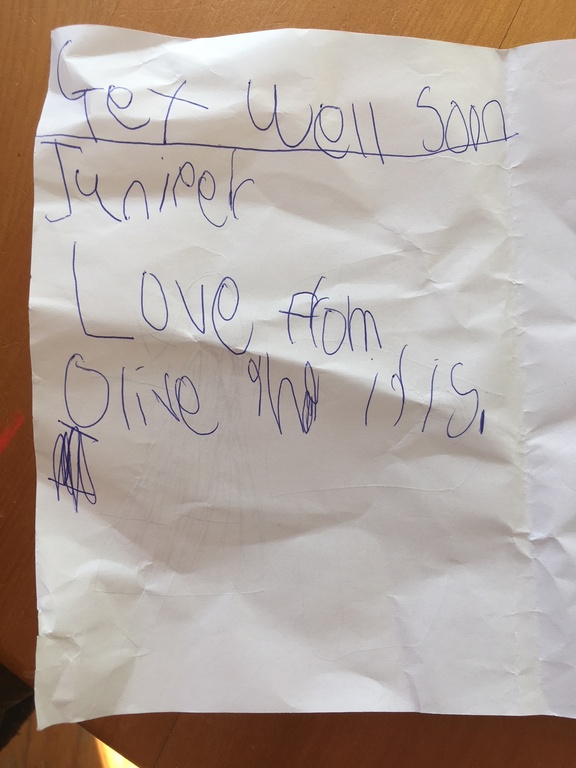 Get Well Soon
Juniper
Love from
Olive